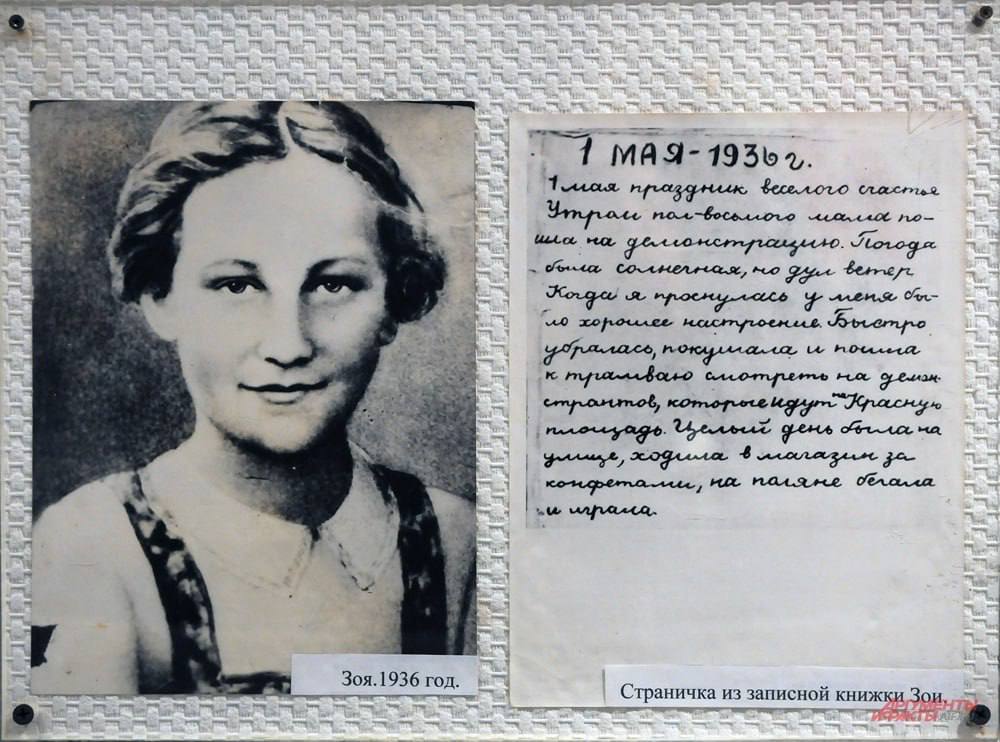 1 МАЯ-1936 г.
1 мая праздник веселого счастья
Утром пол-восьмого мама по-
шла на демонстрацию. Погода
была солнечная, но дул ветер
Когда я проснулась у меня бы-
ло хорошее настроение. Быстро
убралась, покушала и пошла
к трамваю смотреть на демон-
странтов, которые идут на Красную
площадь. Целый день была на
улице, ходила в магазин за
конфетами, на паляне бегала
и играла.
Зоя.1936 год.
Страничка из записной книжки Зои.
АРГУМЕНТЫ
И ФАКТЫ AIF.RU